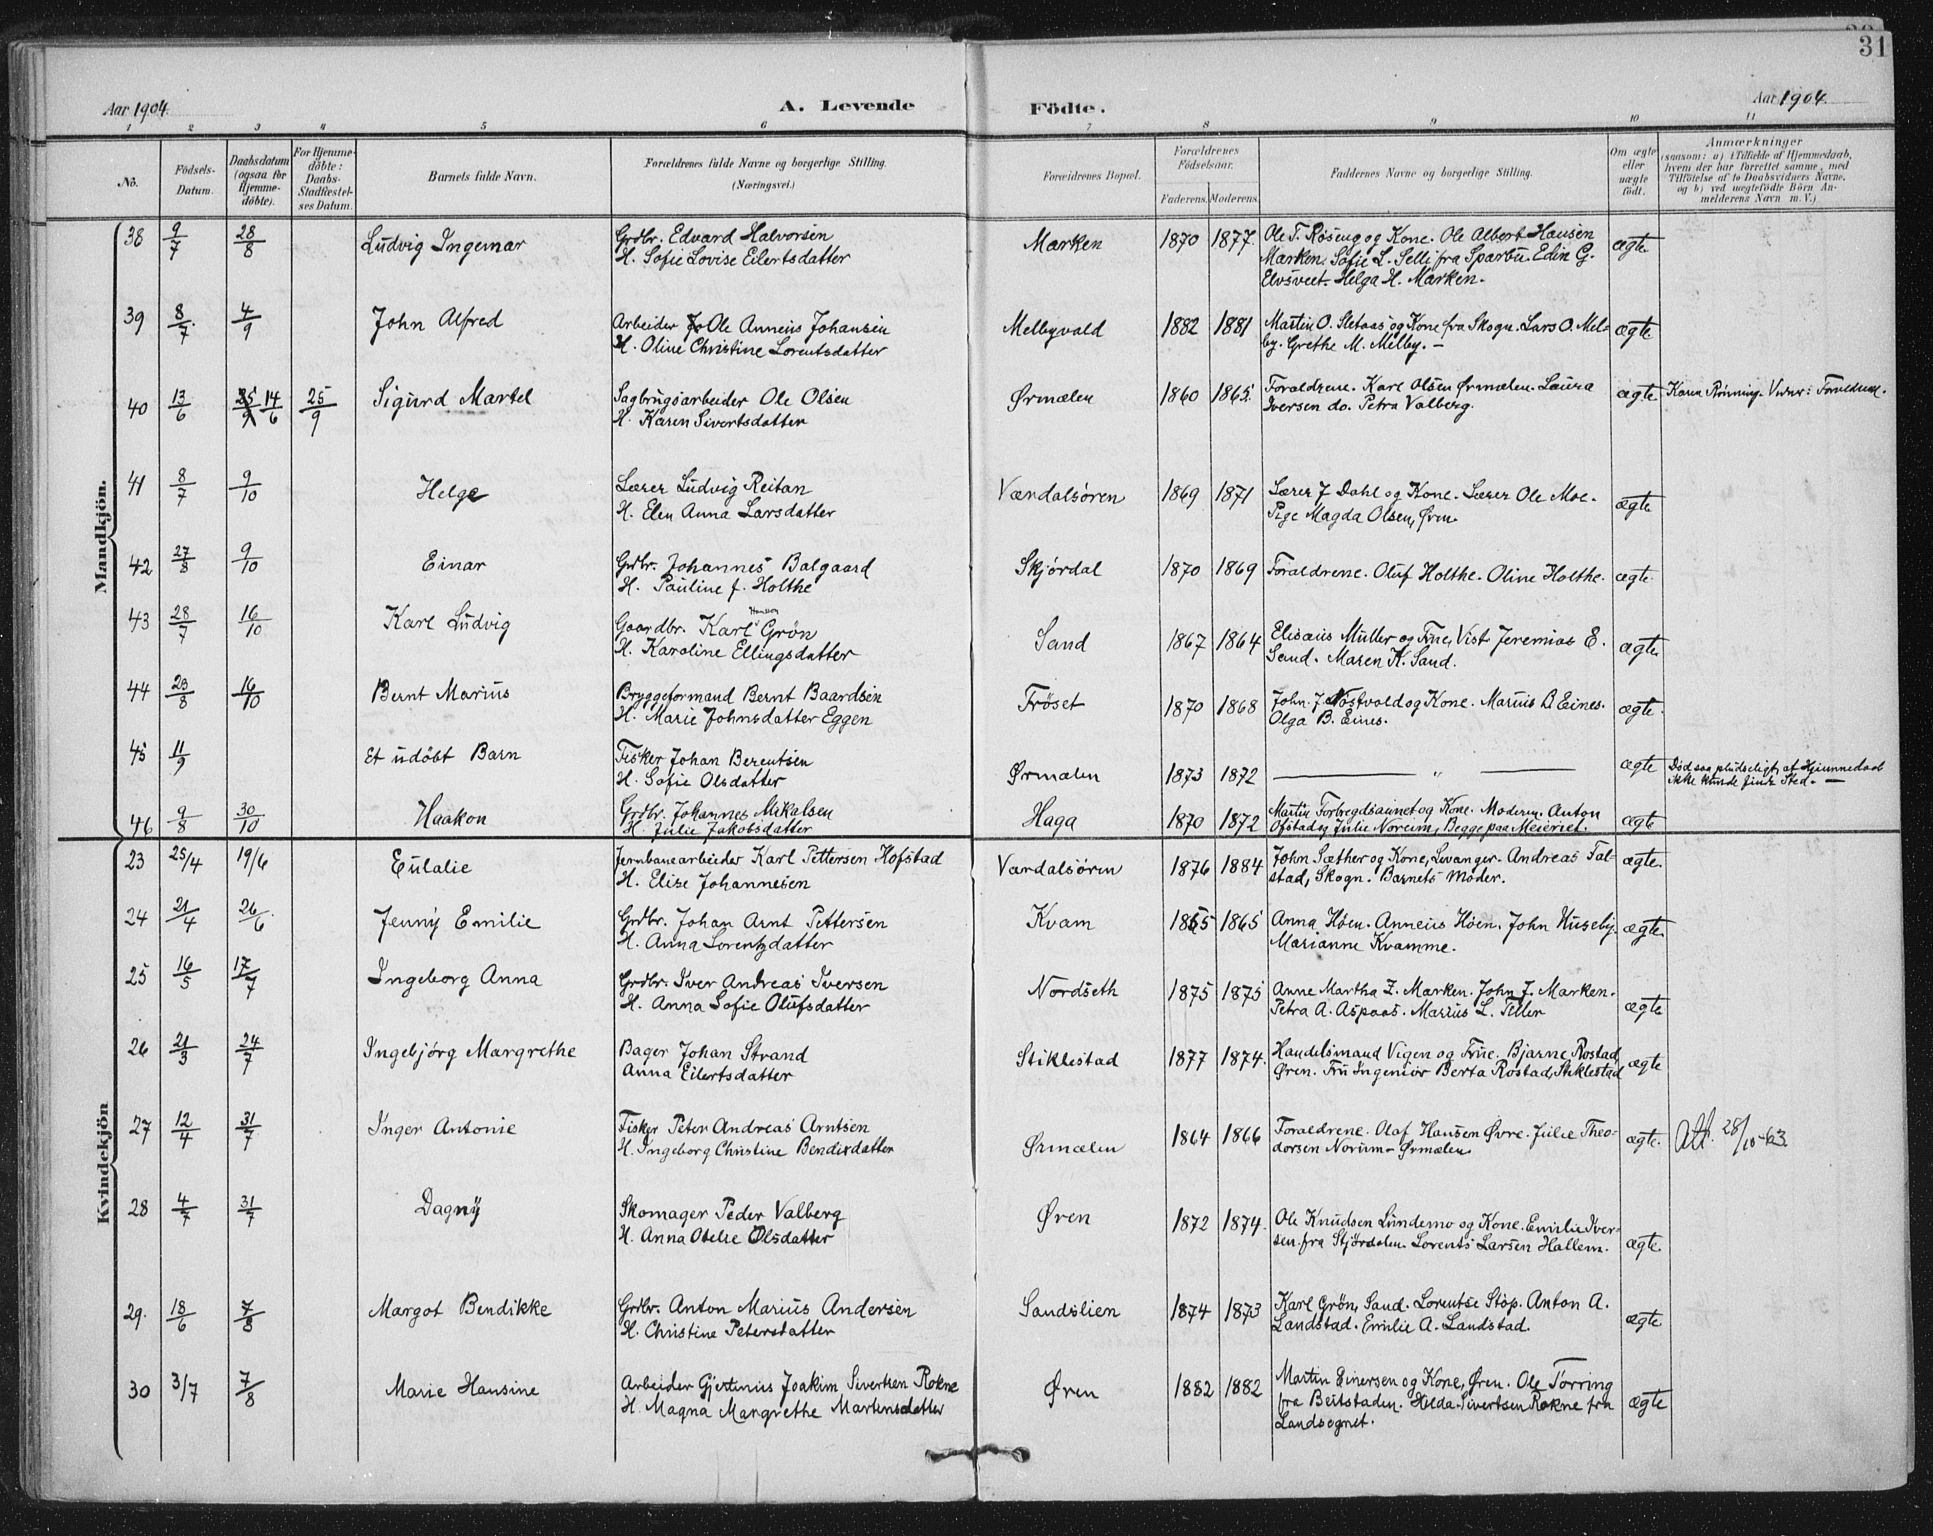 31
Aar 1904.
A. Levende
Födte.
Aar 1904.
1 2 3 4 5 6 7 8 9 10 11
No.
Födsels-
Datum.
Daabsdatum
(ogsaa for
Hjemme-
döbte).
For Hjemme-
döbte:
Daabs-
Stadfæstel-
ses Datum.
Barnets fulde Navn.
Forældrenes fulde Navne og borgerlige Stilling.
(Næringsvei.)
Forældrenes Bopæl.
Forældrenes
Födselsaar.
Faderens. Moderens.
Faddernes Navne og borgerlige Stilling.
Om ægte
eller
uægte
födt.
Anmærkninger
(saasom: a) i Tilfælde af Hjemmedaab,
hvem der har forrettet samme, med
Tilföielse af to Daabsvidners Navne,
og b) ved uægtefödte Börn An-
melderens Navn m. V.)
Mandkjön.
38 9/7 28/8 Ludvig Ingemar Grdbr. Edvard Halvorsen Marken 1870 1877. Ole T. Røseng og Kone. Ole Albert Hansen ægte
H. Sofie Lovise Eilertsdatter Marken. Sofie L. Selli fra Sparbu. Edin G.
Elvsveet. Helga H. Marken.
39 8/7. 4/9 John Alfred Arbeider Ole Anneus Johansen Melbyvald 1882 1881 Martin O. Sletaas og Kone fra Skogn. Lars O. Mel- ægte
H. Oline Christine Lorentsdatter by. Grethe M. Melby. —
40 13/6 25/9 14/6 25/9 Sigurd Martel Sagbrugsarbeider Ole Olsen Ørmælen 1860 1865. Forældrene. Karl Olsen Ørmælen. Laura ægte Karen Rönning. Vidner: Forældrene.
H. Karen Sivertsdatter Iversen do. Petra Valberg.
41 8/7 9/10 Helge Lærer Ludvig Reitan Værdalsören 1869 1871 Lærer J Dahl og Kone. Lærer Ole Moe. ægte
H. Elen Anna Larsdatter Pige Magda Olsen, Ørm.
42 27/8 9/10 Einar Grdbr. Johannes Balgaard Skjørdal 1870 1869 Forældrene. Oluf Holthe. Oline Holthe. ægte
H. Pauline J. Holthe
43 28/7 16/10 Karl Ludvig Gaardbr. Karl Hansson Grön Sand 1867 1864 Elisæus Muller og Frue, Vist. Jeremias E. ægte
H. Karoline Ellingsdatter Sand. Maren K. Sand.
44 28/8 16/10 Bernt Marius Bryggeformand Bernt Baardsen Fröset 1870 1868 John J. Nöstvold og Kone. Marius B. Eines. ægte.
H. Marie Johnsdatter Eggen Olga B. Eines.
45 11/9 Et udöbt Barn Fisker Johan Berentsen Ørmælen 1873 1872 — " — ægte Död saa pludseligt, at Hjemmedaab
H. Sofie Olsdatter ikke kunde finde Sted. —
46 9/8 30/10 Haakon Grdbr. Johannes Mikalsen Haga 1870 1872 Martin Forbregdsaunet og Kone. Moderen. Anton ægte
H. Julie Jakobsdatter Ofstad og Julie Noreim, Begge paa Meieriet.
Kvindekjön
23 25/4 19/6 Eulalie Jernbanearbeider Karl Pettersen Hofstad Værdalsören 1876 1884 John Sæther og Kone, Levanger. Andreas Fal- ægte.
H. Elise Johannesen stad, Skogn. Barnets Moder.
24 21/4 26/6. Jenny Emilie Grdbr. Johan Arnt Pettersen Kvam 1865 1865 Anna Höen. Anneus Höen. John Huseby. ægte.
H. Anna Lorentzdatter Marianne Kvamme.
25 16/5 17/7 Ingeborg Anna Grdbr. Iver Andreas Iversen Nordseth 1875 1875 Anne Martha Z. Marken. John J. Marken. ægte
H. Anna Sofie Olufsdatter Petra A. Aspaas. Marius L. Tiller
26 21/3 24/7 Ingebjörg Margrethe Bager Johan Strand Stiklestad 1877 1874. Handelsmand Vigen og Frue. Bjarne Rostad, ægte
Anna Eilertsdatter Øren. Fru Ingeniör Berta Rostad, Stiklestad
27 12/4 31/7 Inger Antonie Fisker Peter Andreas Arntsen Ørmælen 1864 1866 Forældrene. Olaf Hansen Øvre. Julie Theo- ægte. Att. 28/10-63.
H. Ingeborg Christine Bendixdatter dorsen Norum - Ørmælen
28 4/7 31/7 Dagny Skomager Peder Valberg Øren 1872 1874. Ole Knudsen Lundemo og Kone. Emilie Iver- ægte.
H. Anna Otelie Olsdatter sen fra Stjørdalen. Lorents Larsen Hallem.
29. 18/6 7/8 Margot Bendikke Grdbr. Anton Marius Andersen Sandslien 1874 1873 Karl Grön, Sand. Lorentse Stöp. Anton A. ægte
H. Christine Petersdatter Landstad. Emilie A. Landstad.
30 3/7 7/8 Marie Hansine Arbeider Gjertinius Joakim Sivertsen Rokne Øren 1882 1882 Martin Einersen og Kone, Øren. Ole Torring ægte
H. Magna Margrethe Martinsdatter fra Beitstaden. Helda Sivertsen Rokne fra
Landsognet.